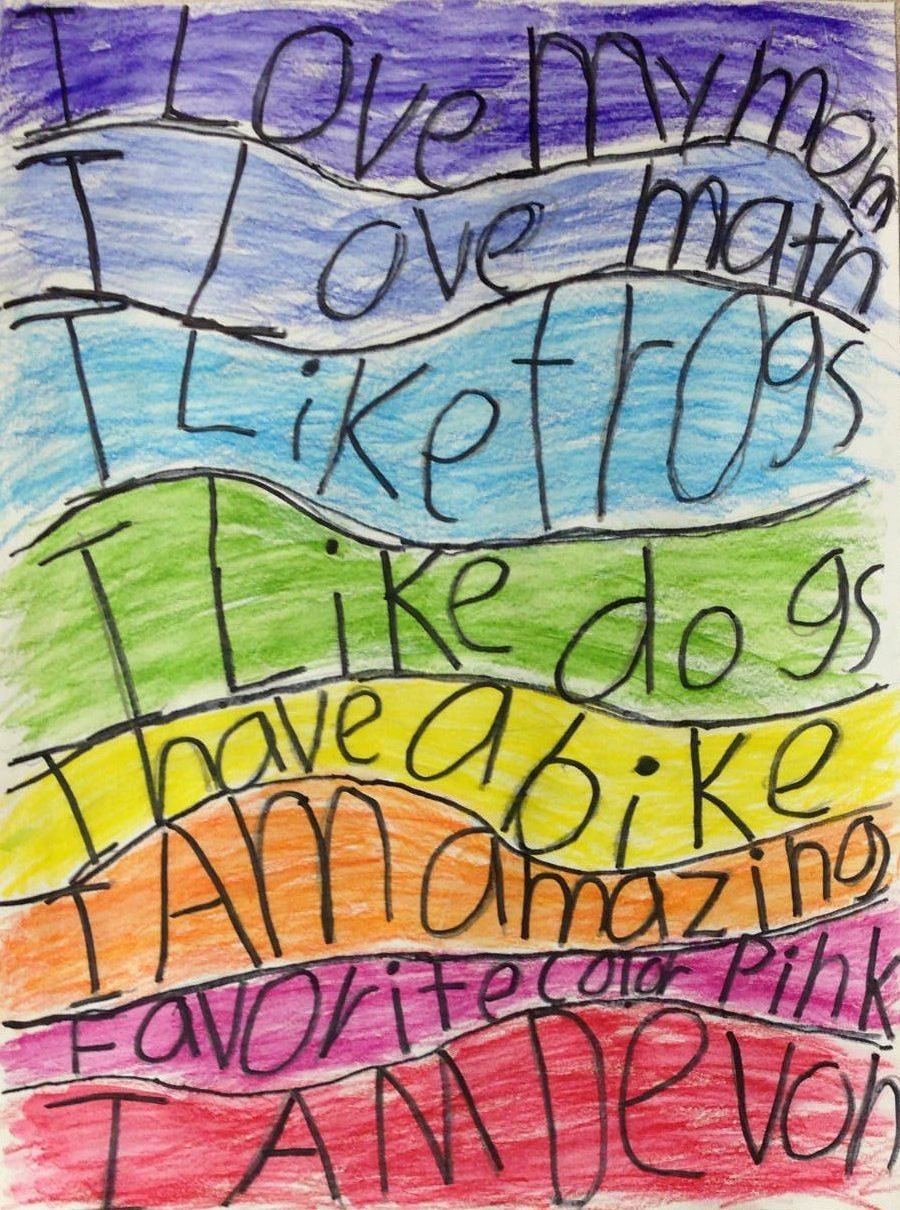 I Love my mom
I Love math
I Like frogs
I Like dogs
I have a bike
I AM amazing
Favorite color Pink
I AM Devon